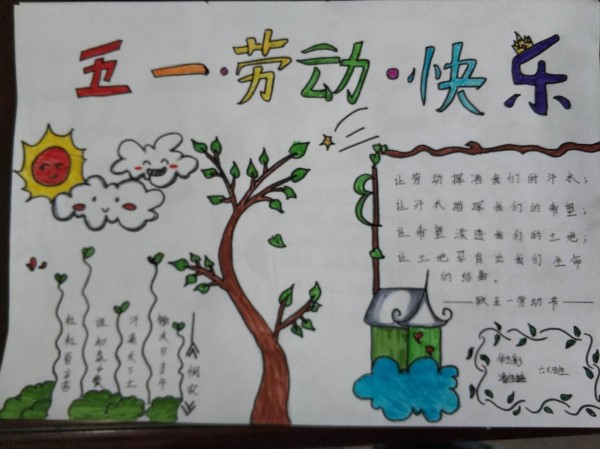 五一·劳动·快乐
让劳动挥洒我们的汗水;
让汗水我们的希望;
让希望渗透我们的土地;
让土地孕育出我们生命
的结果。
——献五一劳动节——
《悯农》
锄禾日当午
汗滴禾下土
谁知盘中餐
粒粒皆辛苦